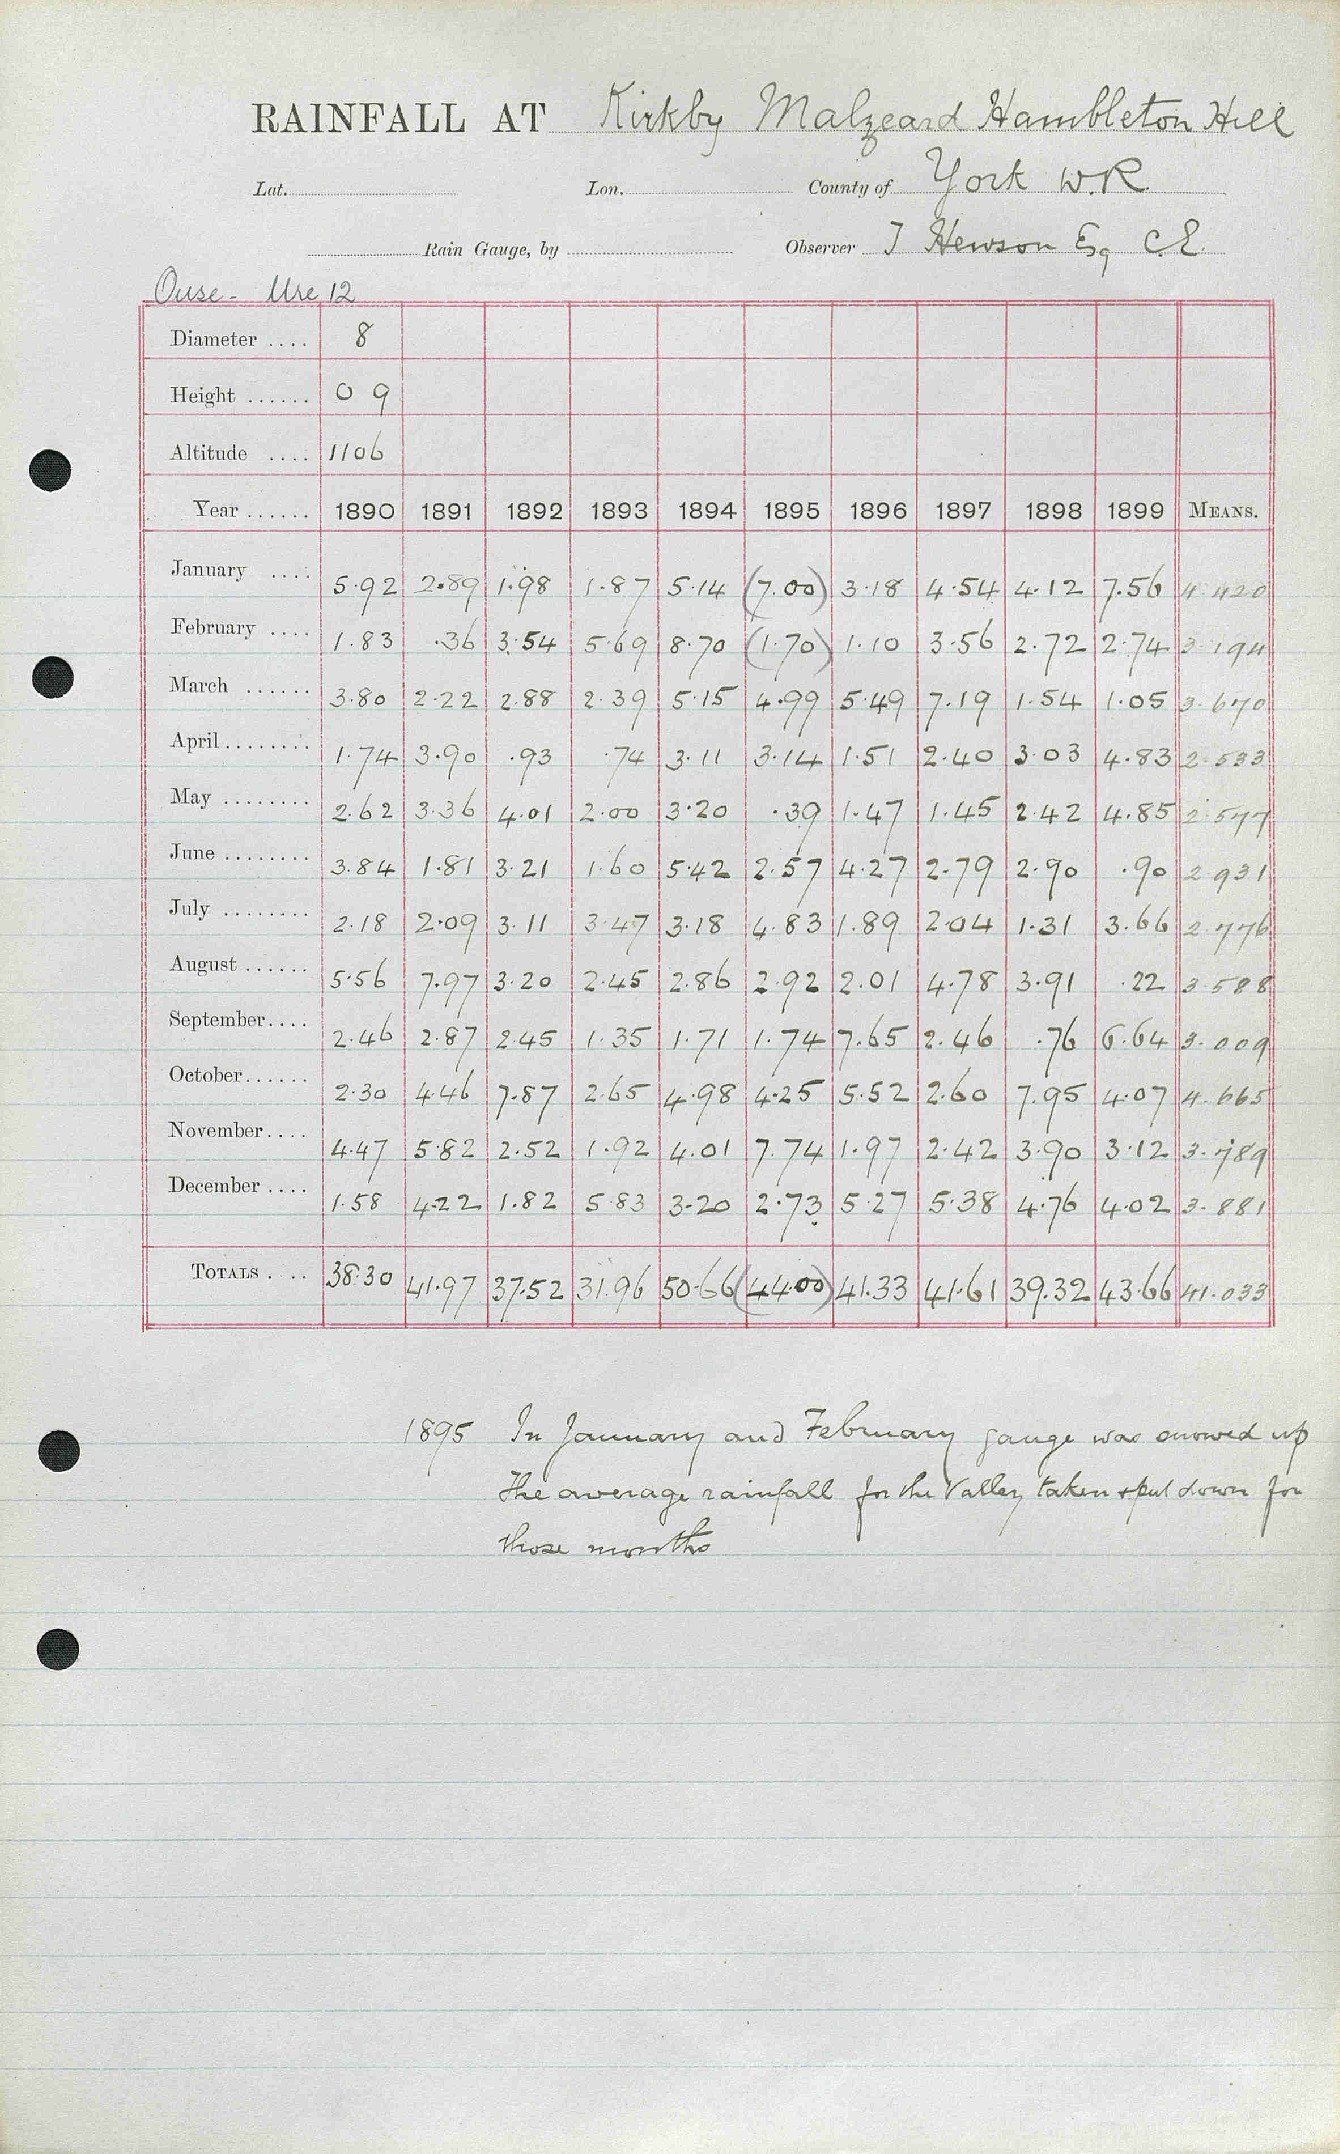 RAINFALL AT Kirkby Malzeard Hambleton Hill
Lat. Lon. County of York W.R.
Rain Gauge, by Observer T Hewson Esq C.E.
Ouse - Ure 12
Diameter .... 8
Height ...... 0 9
Altitude .... 1106
Year ...... 1890 1891 1892 1893 1894 1895 1896 1897 1898 1899 MEANS.
January .... 5.92 2.89 1.98 1.87 5.14 (7.00) 3.18 4.54 4.12 7.56 4.420
February .... 1.83 .36 3.54 5.69 8.70 (1.70) 1.10 3.56 2.72 2.74 3.194
March ...... 3.80 2.22 2.88 2.39 5.15 4.99 5.49 7.19 1.54 1.05 3.670
April ........ 1.74 3.90 .93 .74 3.11 3.14 1.51 2.40 3.03 4.83 2.533
May ........ 2.62 3.36 4.01 2.00 3.20 .39 1.47 1.45 2.42 4.85 2.577
June ........ 3.84 1.81 3.21 1.60 5.42 2.57 4.27 2.79 2.90 .90 2.931
July ........ 2.18 2.09 3.11 3.47 3.18 4.83 1.89 2.04 1.31 3.66 2.776
August ...... 5.56 7.97 3.20 2.45 2.86 2.92 2.01 4.78 3.91 .22 3.588
September .... 2.46 2.87 2.45 1.35 1.71 1.74 7.65 2.46 .76 6.64 3.009
October ...... 2.30 4.46 7.87 2.65 4.98 4.25 5.52 2.60 7.95 4.07 4.665
November .... 4.47 5.82 2.52 1.92 4.01 7.74 1.97 2.42 3.90 3.12 3.789
December .... 1.58 4.22 1.82 5.83 3.20 2.73 5.27 5.38 4.76 4.02 3.881
TOTALS .... 38.30 41.97 37.52 31.96 50.66 (44.00) 41.33 41.61 39.32 43.66 41.033
1895 In January and February gauge was snowed up
The average rainfall for the Valley taken & put down for
those months